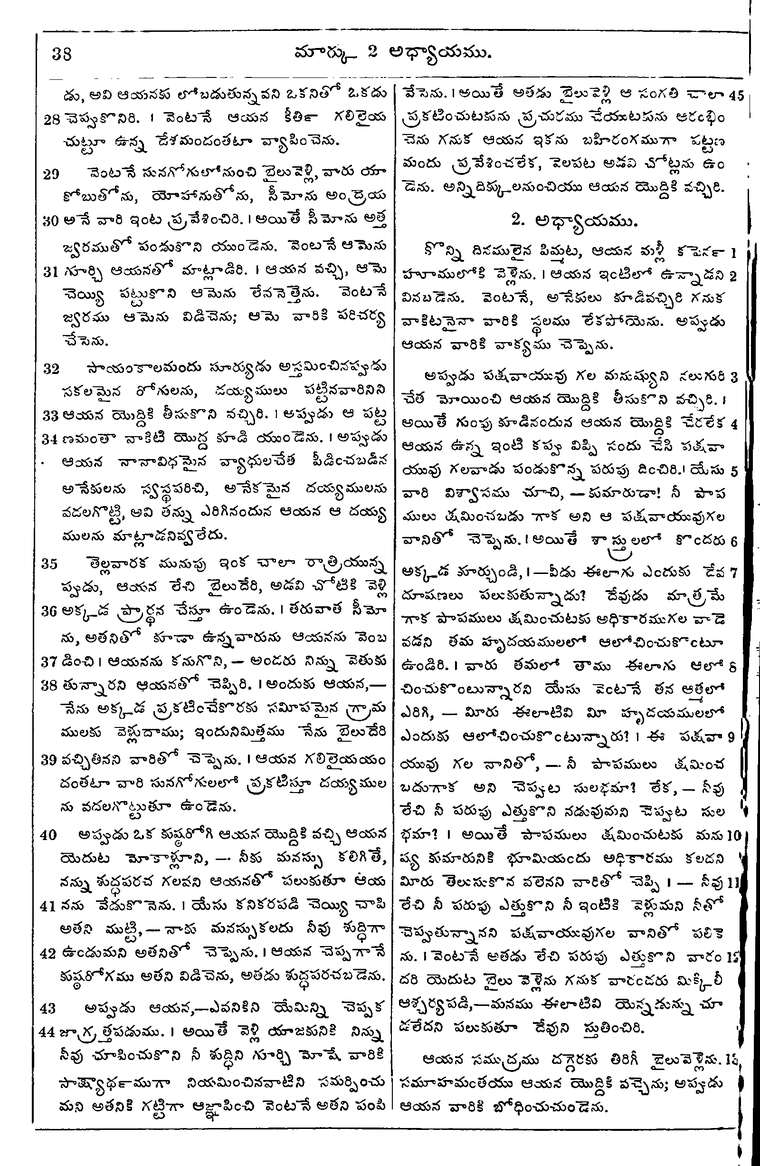 38
మార్కు 2 అధ్యాయము.
డు, అవి ఆయనకు లోబడుతున్నవని ఒకనితో ఒకడు
28 చెప్పుకొనిరి. । వెంటనే ఆయన కీర్తి గలిలైయ
చుట్టూ ఉన్న దేశమందంతటా వ్యాపించెను.
29 వెంటనే సునగోగులోనుంచి బైలువెళ్లి, వారు యా
కోబుతోను, యోహానుతోను, సీమోను అంద్రెయ
30 అనే వారి ఇంట ప్రవేశించిరి. । అయితే సీమోను అత్త
జ్వరముతో పండుకొని యుండెను. వెంటనే ఆమెను
31 గూర్చి ఆయనతో మాట్లాడిరి. । ఆయన వచ్చి, ఆమె
చెయ్యి పట్టుకొని ఆమెను లేవనెత్తెను. వెంటనే
జ్వరము ఆమెను విడిచెను; ఆమె వారికి పరిచర్య
చేసెను.
32 సాయంకాలమందు సూర్యుడు అస్తమించినప్పుడు
సకలమైన రోగులను, దయ్యములు పట్టినవారినిని
33 ఆయన యొద్దికి తీసుకొని వచ్చిరి. । అప్పుడు ఆ పట్ట
34 ణమంతా వాకిటి యొద్ద కూడి యుండెను. । అప్పుడు
ఆయన నానావిధమైన వ్యాధులచేత పీడించబడిన
అనేకులను స్వస్థపరిచి, అనేకమైన దయ్యములను
వదలగొట్టి, అవి తన్ను ఎరిగినందున ఆయన ఆ దయ్య
ములను మాట్లాడనివ్వలేదు.
35 తెల్లవారక మునుపు ఇంక చాలా రాత్రియున్న
ప్పుడు, ఆయన లేచి బైలుదేరి, అడవి చోటికి వెళ్లి
36 అక్కడ ప్రార్థన చేస్తూ ఉండెను. । తరువాత సీమో
ను, అతనితో కూడా ఉన్నవారును ఆయనను వెంబ
37 డించి। ఆయనను కనుగొని, — అందరు నిన్ను వెతుకు
38 తున్నారని ఆయనతో చెప్పిరి. । అందుకు ఆయన,—
నేను అక్కడ ప్రకటించేకొరకు సమీపమైన గ్రామ
ములకు వెళ్లుదాము; ఇందునిమిత్తము నేను బైలుదేరి
39 వచ్చితినని వారితో చెప్పెను. । ఆయన గలిలైయయం
దంతటా వారి సునగోగులలో ప్రకటిస్తూ దయ్యముల
ను వదలగొట్టుతూ ఉండెను.
40 అప్పుడు ఒక కుష్ఠరోగి ఆయన యొద్దికి వచ్చి ఆయన
యెదుట మోకాళ్లూని, — నీకు మనస్సు కలిగితే,
నన్ను శుద్ధపరచ గలవని ఆయనతో పలుకుతూ ఆయ
41 నను వేడుకొనెను. । యేసు కనికరపడి చెయ్యి చాపి
అతని ముట్టి,— నాకు మనస్సుకలదు నీవు శుద్ధిగా
42 ఉండుమని అతనితో చెప్పెను. । ఆయన చెప్పగానే
కుష్ఠరోగము అతని విడిచెను, అతడు శుద్ధపరచబడెను.
43 అప్పుడు ఆయన,—ఎవనికిని యేమిన్ని చెప్పక
44 జాగ్రత్తపడుము. । అయితే వెళ్లి యాజకునికి నిన్ను
నీవు చూపించుకొని నీ శుద్ధిని గూర్చి మోషే వారికి
సాక్ష్యార్థముగా నియమించినవాటిని సమర్పించు
మని అతనికి గట్టిగా ఆజ్ఞాపించి వెంటనే అతని పంపి
వేసెను. । అయితే అతడు బైలువెళ్లి ఆ సంగతి చాలా 45
ప్రకటించుటకును ప్రచురము చేయుటకును ఆరంభిం
చెను గనుక ఆయన ఇకను బహిరంగముగా పట్టణ
మందు ప్రవేశించలేక, వెలపట అడవి చోట్లను ఉం
డెను. అన్నిదిక్కులనుంచియు ఆయన యొద్దికి వచ్చిరి.
2. అధ్యాయము.
కొన్ని దినములైన పిమ్మట, ఆయన మళ్లీ కపెర్న 1
హూములోకి వెళ్లెను. । ఆయన ఇంటిలో ఉన్నాడని 2
వినబడెను. వెంటనే, అనేకులు కూడివచ్చిరి గనుక
వాకిటనైనా వారికి స్థలము లేకపోయెను. అప్పుడు
ఆయన వారికి వాక్యము చెప్పెను.
అప్పుడు పక్షవాయువు గల మనుష్యుని నలుగురి 3
చేత మోయించి ఆయన యొద్దికి తీసుకొని వచ్చిరి. ।
అయితే గుంపు కూడినందున ఆయన యొద్దికి చేరలేక 4
ఆయన ఉన్న ఇంటి కప్పు విప్పి సందు చేసి పక్షవా
యువు గలవాడు పండుకొన్న పరుపు దించిరి.। యేసు 5
వారి విశ్వాసము చూచి, — కుమారుడా! నీ పాప
ములు క్షమించబడు గాక అని ఆ పక్షవాయువుగల
వానితో చెప్పెను. । అయితే శాస్త్రులలో కొందరు 6
అక్కడ కూర్చుండి, ।—వీడు ఈలాగు ఎందుకు దేవ 7
దూషణలు పలుకుతున్నాడు? దేవుడు మాత్రమే
గాక పాపములు క్షమించుటకు అధికారముగల వాడె
వడని తమ హృదయములలో ఆలోచించుకొంటూ
ఉండిరి. । వారు తమలో తాము ఈలాగు ఆలో 8
చించుకొంటున్నారని యేసు వెంటనే తన ఆత్మలో
ఎరిగి, — మీరు ఈలాటివి మీ హృదయములలో
ఎందుకు ఆలోచించుకొంటున్నారు? । ఈ పక్షవా 9
యువు గల వానితో, — నీ పాపములు క్షమించ
బడుగాక అని చెప్పుట సులభమా? లేక, — నీవు
లేచి నీ పరుపు ఎత్తుకొని నడువుమని చెప్పుట సుల
భమా? । అయితే పాపములు క్షమించుటకు మను 10
ష్య కుమారునికి భూమియందు అధికారము కలదని
మీరు తెలుసుకొన వలెనని వారితో చెప్పి । — నీవు 11
లేచి నీ పరుపు ఎత్తుకొని నీ ఇంటికి వెళ్లుమని నీతో
చెప్పుతున్నానని పక్షవాయువుగల వానితో పలికె
ను. । వెంటనే అతడు లేచి పరుపు ఎత్తుకొని వారం 12
దరి యెదుట బైలు వెళ్లెను గనుక వారందరు మిక్కిలీ
ఆశ్చర్యపడి,—మనము ఈలాటివి యెన్నడున్ను చూ
డలేదని పలుకుతూ దేవుని స్తుతించిరి.
ఆయన సముద్రము దగ్గెరకు తిరిగీ బైలువెళ్లెను. 13
సమూహమంతయు ఆయన యొద్దికి వచ్చెను; అప్పుడు
ఆయన వారికి బోధించుచుండెను.